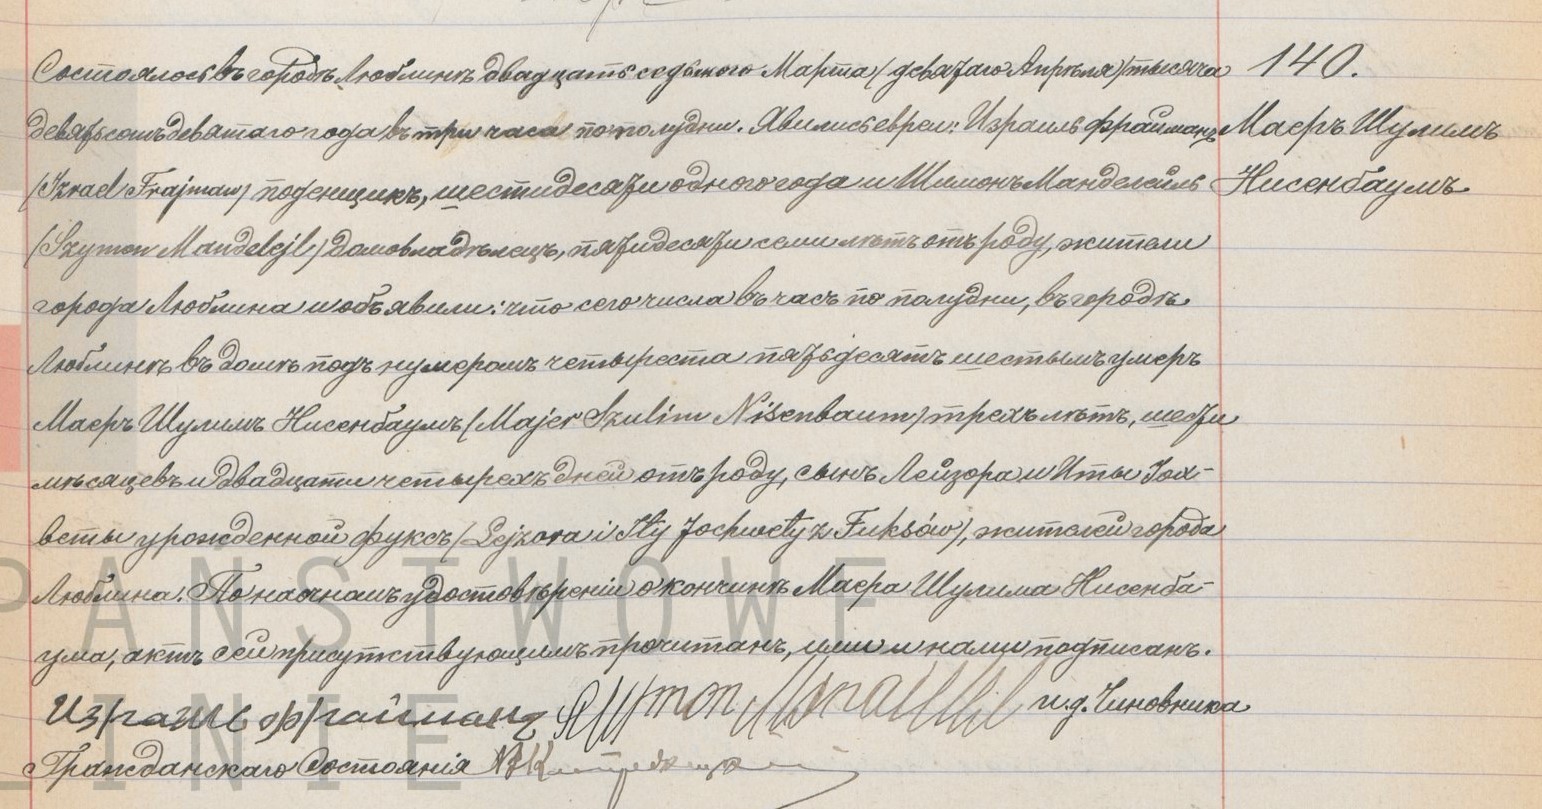 Состоялось въ городѣ Люблинѣ двадцать седьмого Марта (девятаго Апрѣля) тысяча
140.
девятьсотъ девятаго года въ три часа по полудни. Явились евреи: Израиль Фрайманъ
Маеръ Шулимъ
(Izrael Frajman) поденщикъ, шестидесяти одного года и Шимонъ Мандельейль
Нисенбаумъ
(Szymon Mandelejl) домовладѣлецъ, пятидесяти семи лѣтъ отъ роду, жители
города Люблина и объявили: что сего числа въ часъ по полудни, въ городѣ
Люблинѣ въ домѣ подъ нумеромъ четыреста пятьдесятъ шестымъ умеръ
Маеръ Шулимъ Нисенбаумъ (Majer Szulim Nisenbaum) трехъ лѣтъ, шести
мѣсяцевъ и двадцати четырехъ дней отъ роду, сынъ Лейзора и Иты Іох-
веты урожденной Фуксъ (Lejzora i Ity Jochwety z Fuksów), жителей города
Люблина. По наочномъ удостовѣреніи о кончинѣ Маера Шулима Нисенба-
ума, актъ сей присутствующимъ прочитанъ, ими и нами подписанъ.
Израиль Фрайманъ и. д. Чиновника
Гражданскаго Состоянія
PAŃSTWOWE
LINIE